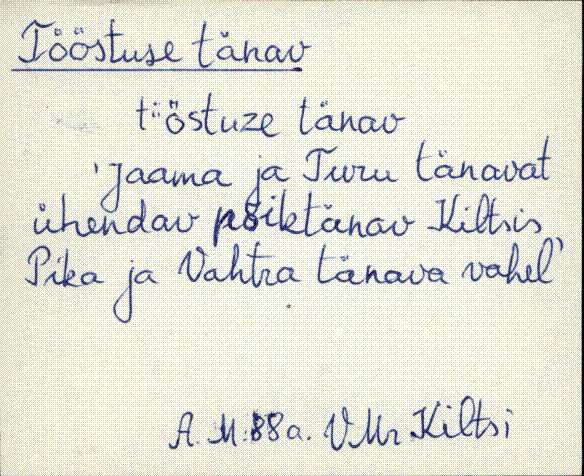 Tööstuse tänav
t'östuze tänav
'Jaama ja Turu tänavat
ühendav põiktänav Kiltsis
Pika ja Vahtra tänava vahel'
A. M. 88 a. VMr Kiltsi